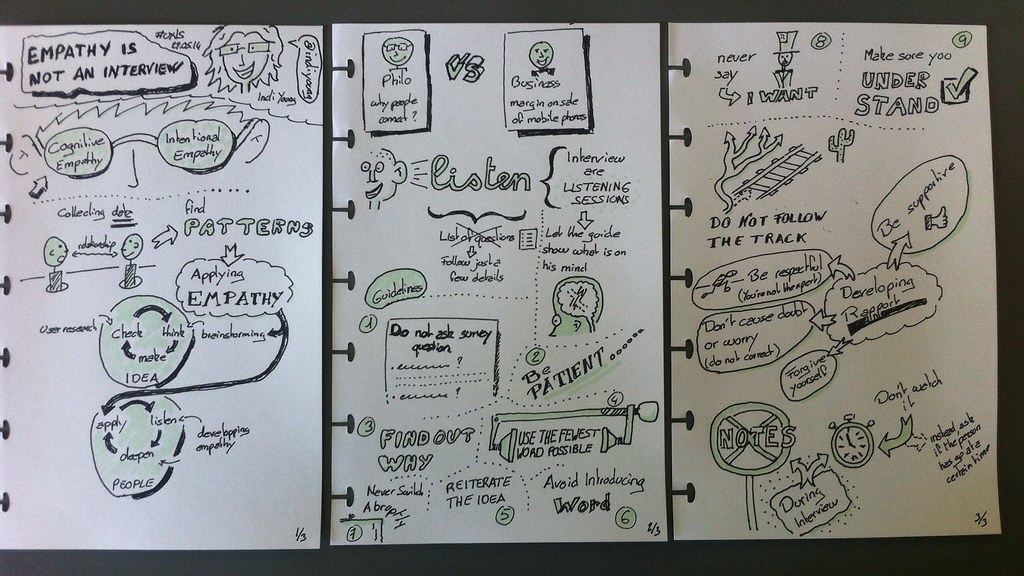 EMPATHY IS
NOT AN INTERVIEW
@indiyoung
Indi Young
Cognitive
Empathy
Intentional
Empathy
Collecting data
relationship
find
PATTERNS
Applying
EMPATHY
User research
check
think
make
IDEA
brainstorming
apply
listen
deepen
PEOPLE
developping
empathy
1/3
Philo
why people
connect ?
VS
Business
margin on sale
of mobile phones
listen
Interview
are
LISTENING
SESSIONS
List of questions
Follow just a
few details
Let the guide
show what is on
his mind
Guidelines
1
Do not ask survey
question
?
?
2
Be
PATIENT......
3
FIND OUT
WHY
4
USE THE FEWEST
WORD POSSIBLE
Never
A
7
REITERATE
THE IDEA
5
Avoid Introducing
Word
6
2/3
never
say
I WANT
8
Make sure you
UNDER
STAND
9
DO NOT FOLLOW
THE TRACK
Be supportive
Be respectful
(You're not the expert)
Developing
Rapport
Don't cause doubt
or worry
(do not correct)
Forgive
yourself
NOTES
During
Interview
Don't watch
it
instead ask
if the person
has
certain time
3/3